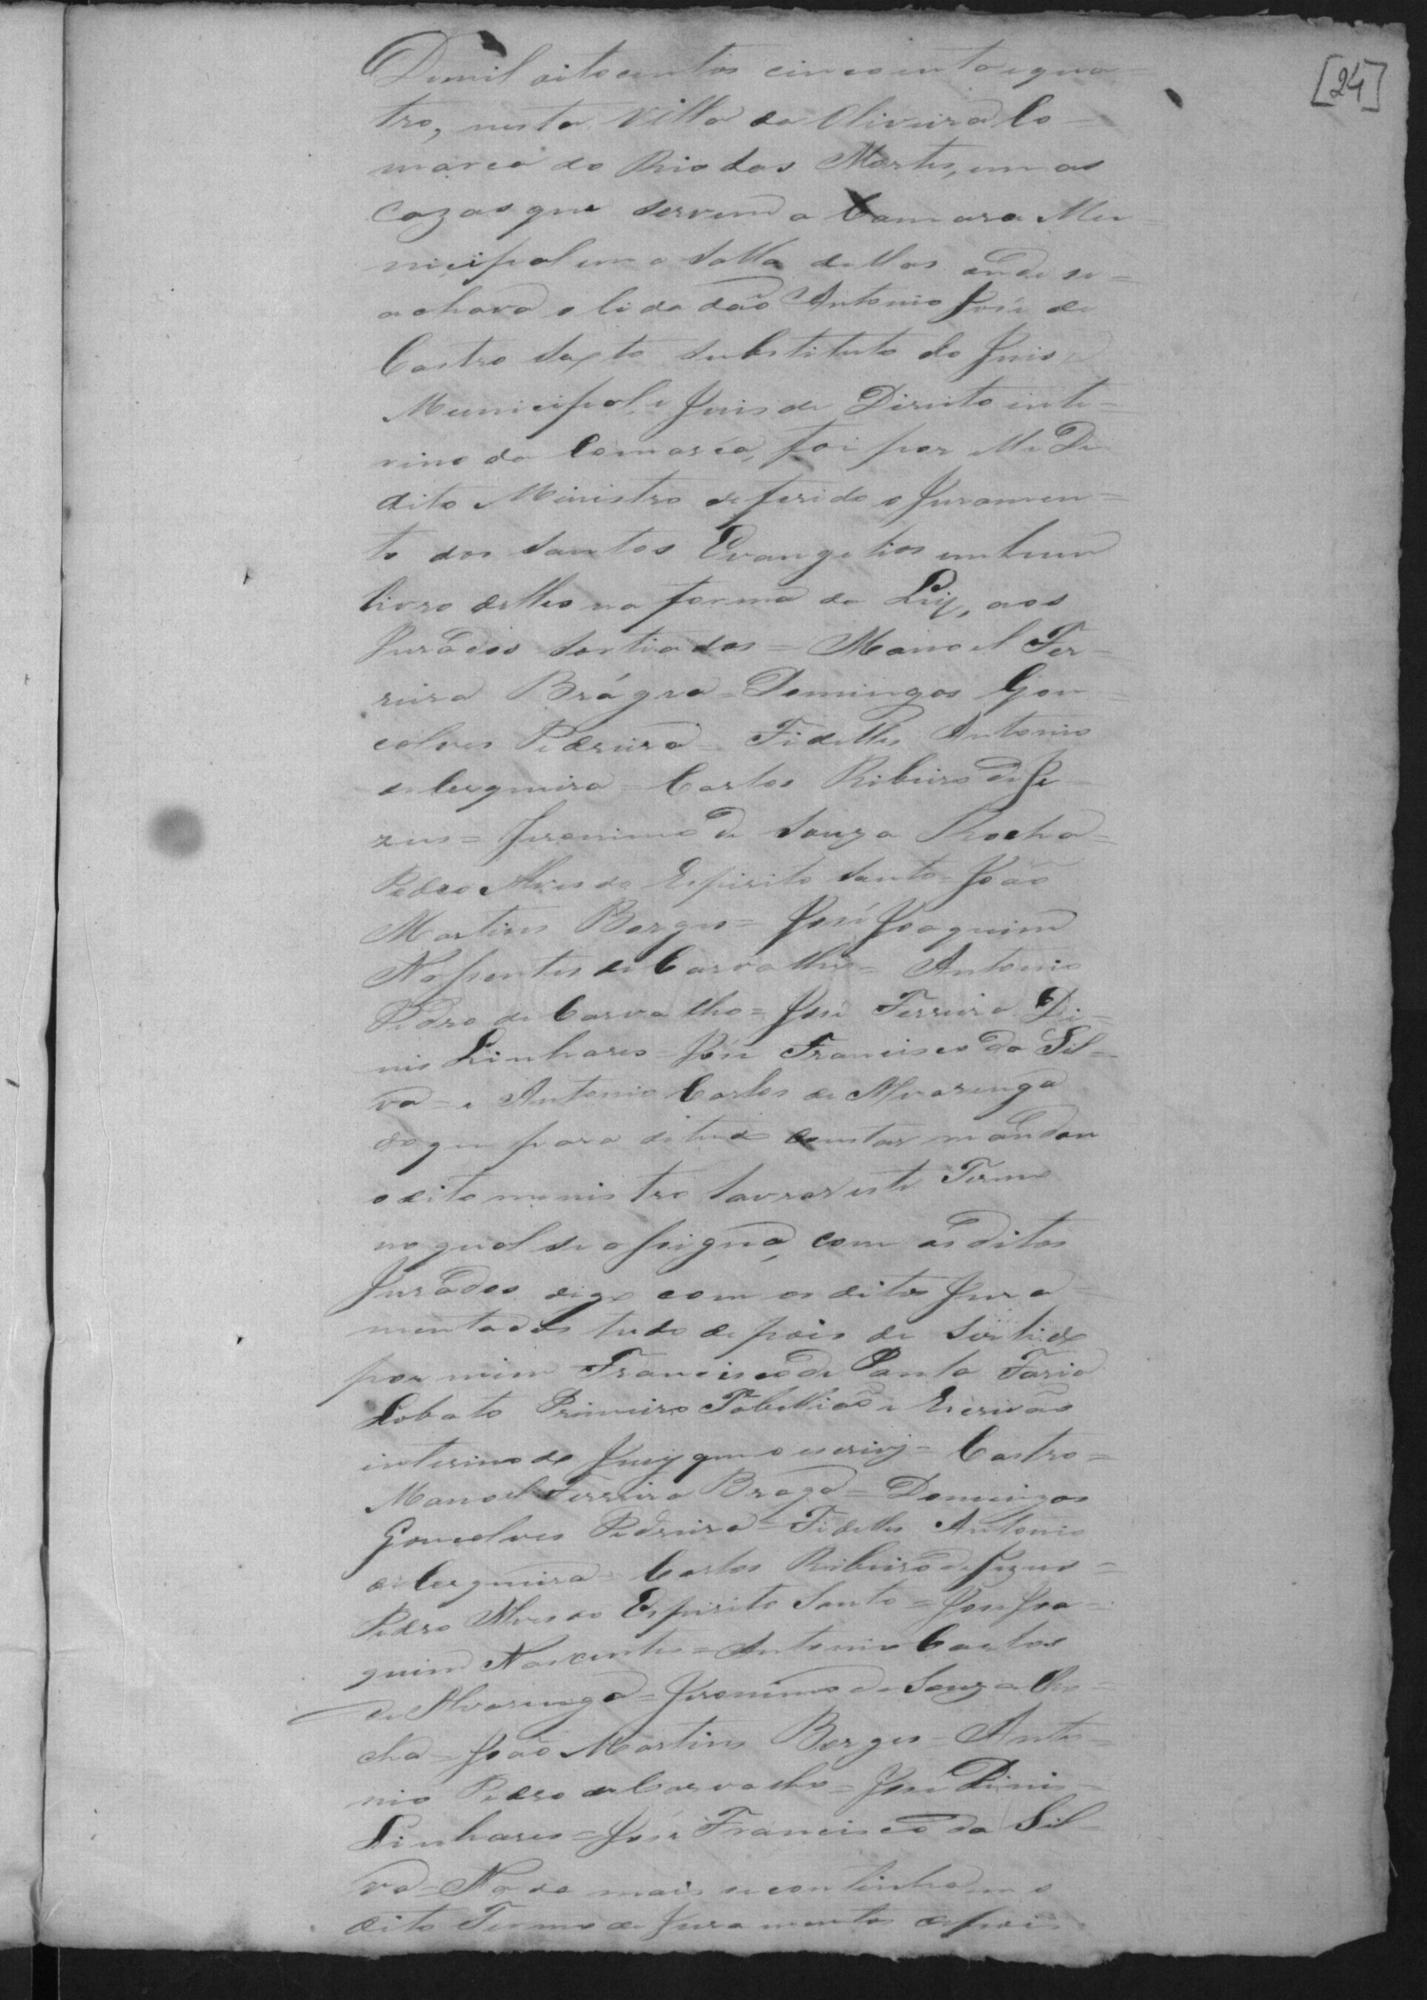 [24]
De mil oito centos cincoenta e qua-
tro, nesta Villa da Oliveira Co-
marca do Rio das Mortes, em as
cazas que servem a Camara Mu-
nicipal em a salla dellas onde se
achava o Cidadão Antonio José de
Castro sexto substituto do Juis
Municipal e Juis de Direito inte-
rino da Comarca, foi por
dito Ministro deferido o Juramen-
to dos Santos Evangelios em hum
livro delles na forma da Ley, aos
Jurados sortiados = Manoel Fer-
reira Brágra = Domingos Gon-
calves Pedreira = Fidellis Antonio
de Cerqueira = Carlos Ribeiro de Je-
zus = Jeronimo de Souza Rocha =
Pedro Alves do Espirito Santo = João
Martins Borges = José Joaquim
Nassentes de Carvalho = Antonio
Pedro de Carvalho = José Ferreira Di-
nis Linhares = José Francisco da Sil-
va = e Antonio Carlos de Alvarenga
do que para de tudo constar mandou
o dito ministro lavrar este Termo
no qual se assigna, com os ditos
Jurados digo com os ditos Jura-
mentados tudo depois de
por mim Francisco de Paula Faria
Lobato Primeiro Tabellião e Escrivão
interino do Jury que o escrevy = Castro =
Manoel Ferreira Braga = Domingos
Goncalves Pedreira = Fidellis Antonio
de Cerqueira = Carlos Ribeiro de Jezus =
Pedro Alves do Espirito Santo = José Joa-
quim Nascentes = Antonio Carlos
de Alvarenga = Jeronimo de Souza Ro-
cha = João Martins Borges = Anto-
nio Pedro de Carvalho = José Dinis
Linhares = José Francisco da Sil-
va = Nada mais se continha em o
dito Termo de Juramentos depois